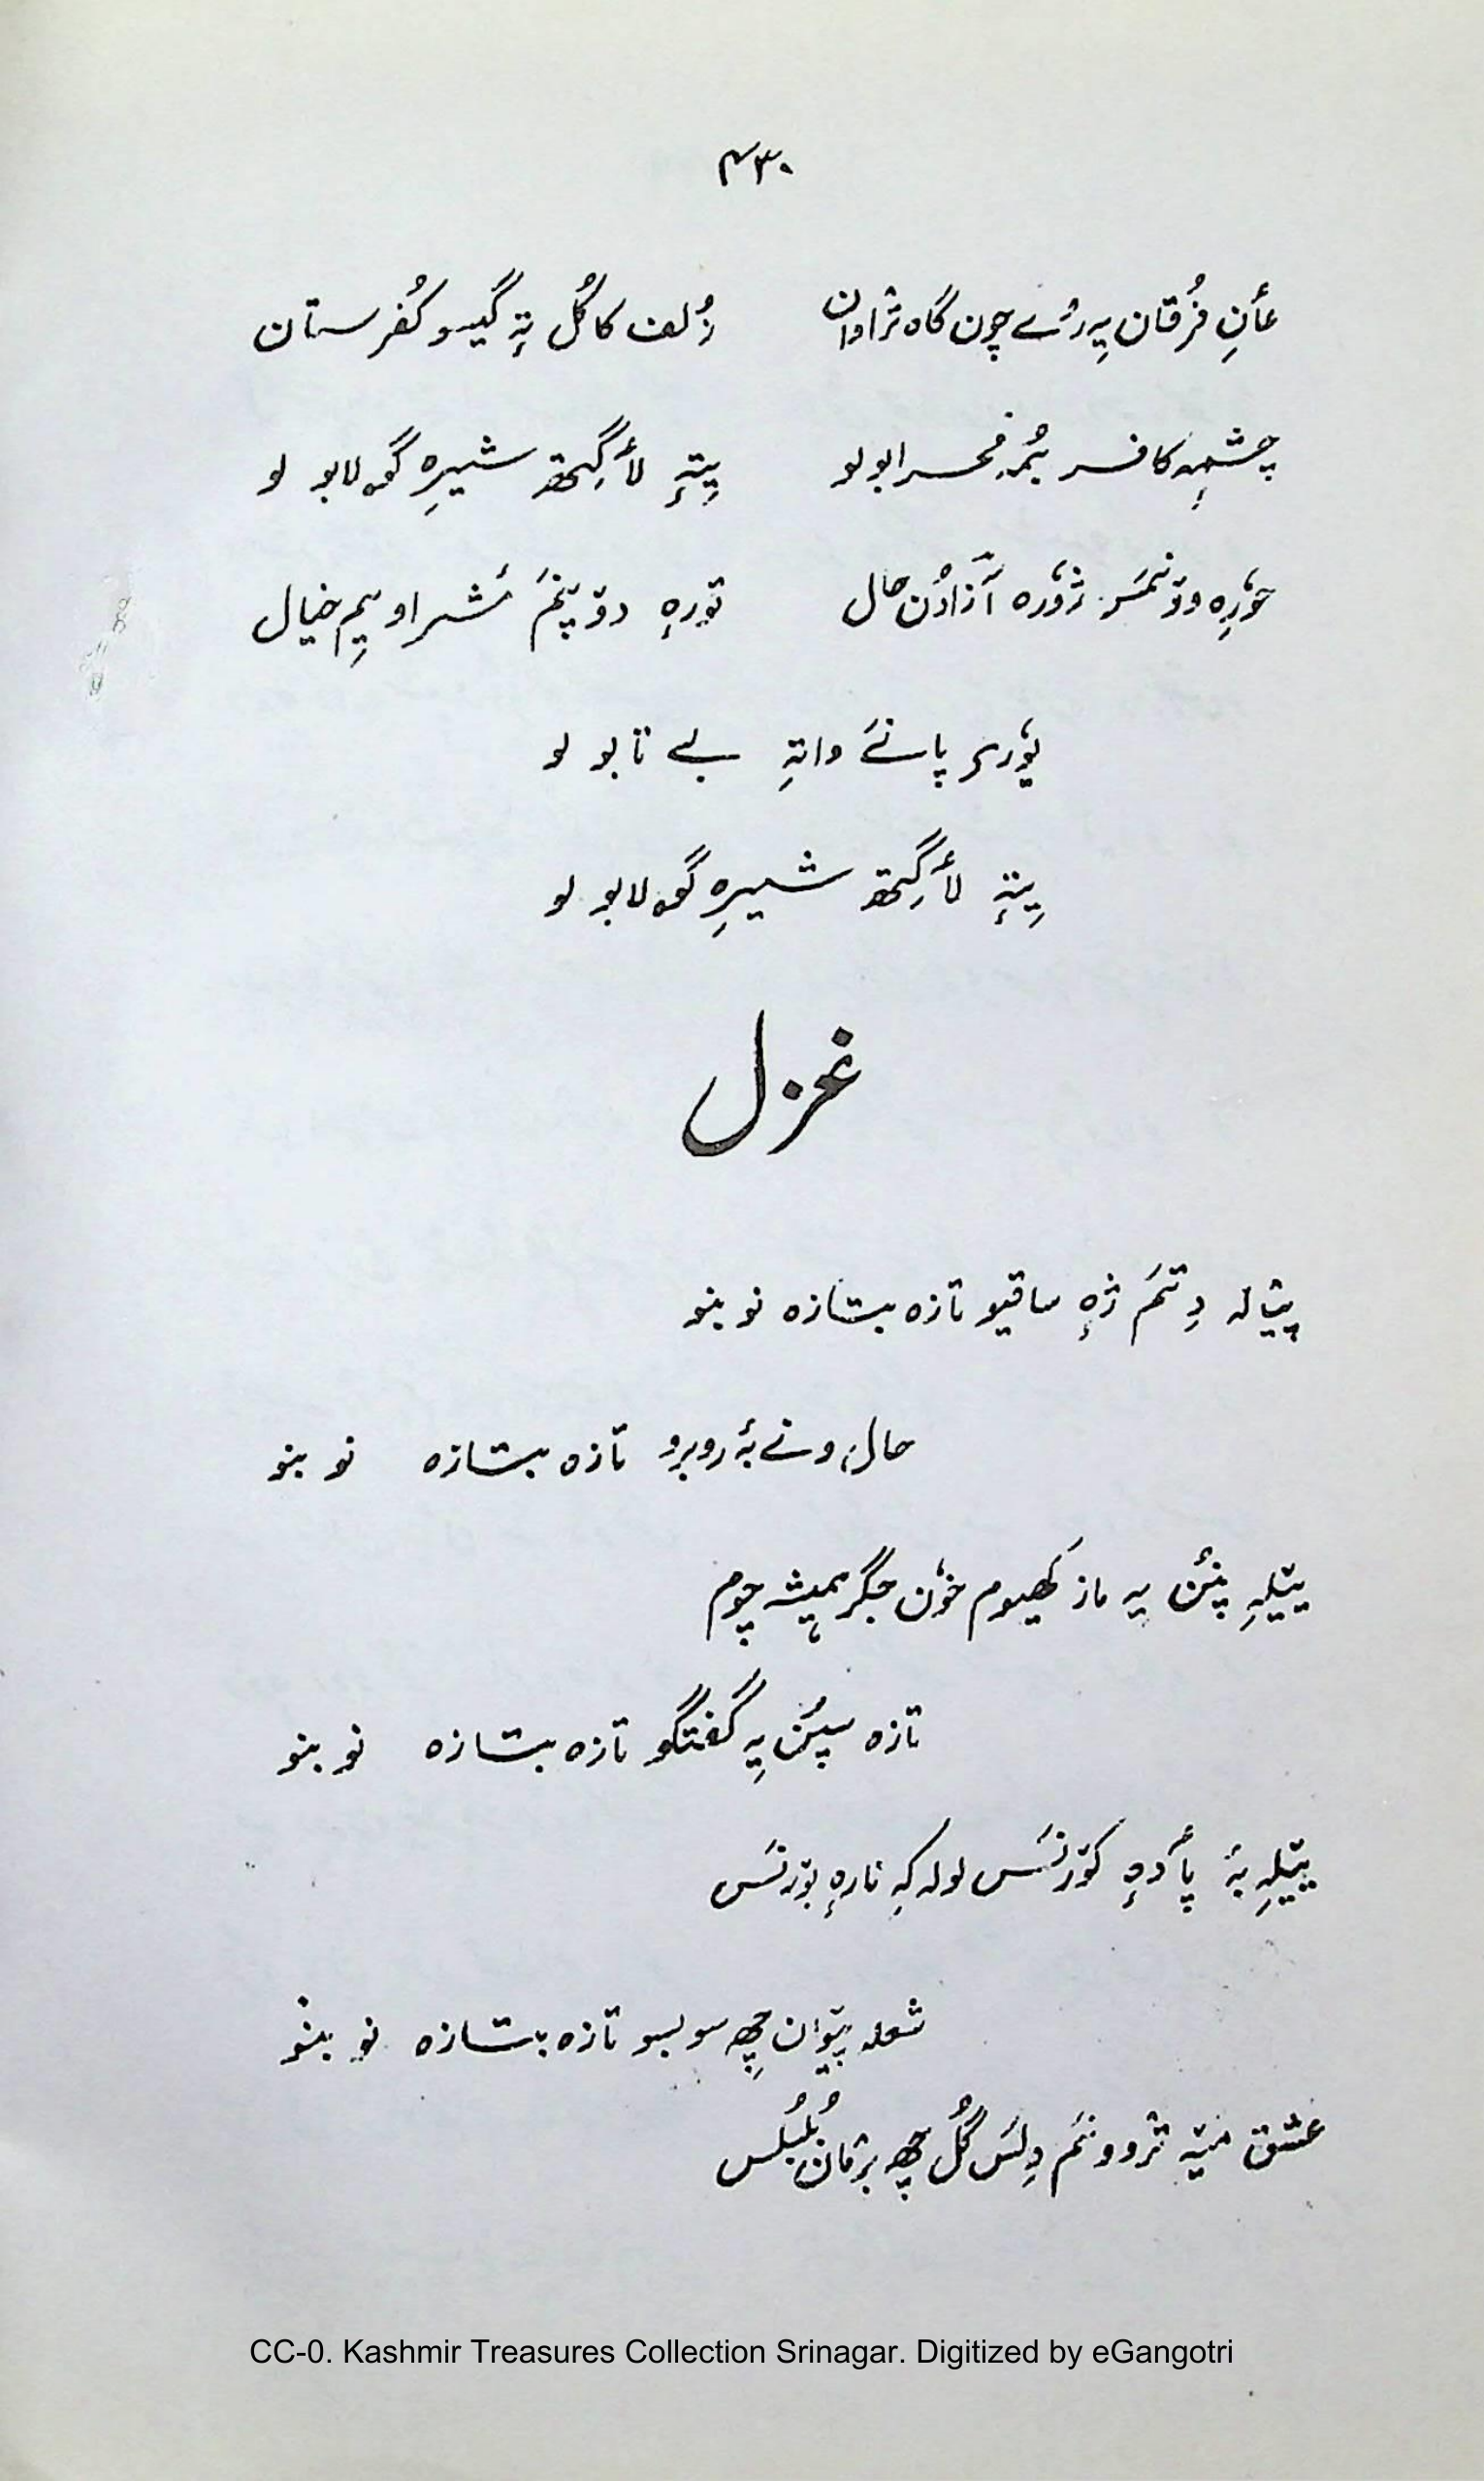 ۴۳۰
عأنِ فُرقان یِہ رُے چون گاہ ترٛاوان زُلف کاکُل تہٕ گیسو کُفرستان
چشمہٕ کافر بُمہٕ محرابو لو یِتہٕ لأگِتھ شیرِہ گولابو لو
حوٗرِہ ووٚنمَس ژوٗرہ آزادُن حال تورہٕ دوٚپنَم مٔشراو یِم خیال
یوٗری پانَے واتہِ بے تابو لو
یِتہٕ لأگِتھ شیرِہ گولابو لو
غزل
پیالہ دِتمَ ژہٕ ساقیو تازہ بتازہ نو بنو
حال ونے بۂ روبرو تازہ بتازہ نو بنو
ییٚلہِ پنُن یہ ماز کھیوم خوٗن جگر ہمیشہ چوم
تازہ سپُن یِہ گفتگو تازہ بتازہ نو بنو
ییٚلہِ بۂ پأدہٕ کوٚرنَس لولہ کہِ نارہٕ بوٚرنَس
شعلہ پیوان چھِ سو بسو تازہ بتازہ نو بنو
عشق میٚہ ترٛوونَم دِلَس گُل چھِ برٛمان بُلبُلس
CC-0. Kashmir Treasures Collection Srinagar. Digitized by eGangotri